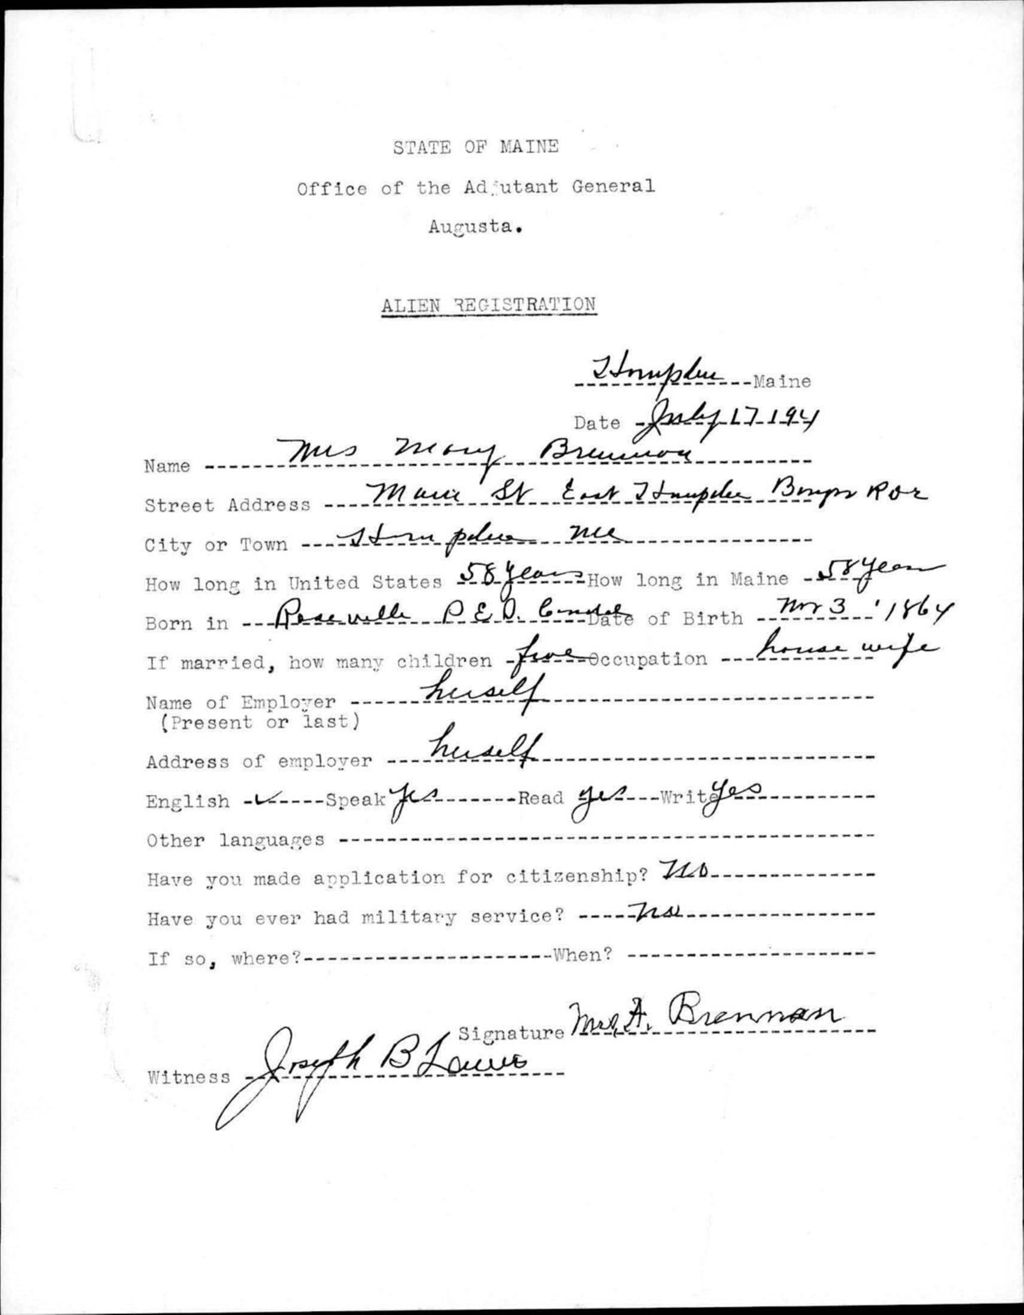 STATE OF MAINE
Office of the Adjutant General
Augusta.
ALIEN REGISTRATION
Hampden Maine
Date July 17 194
Name Mrs Mary Brennan
Street Address Main St East Hampden
City or Town Hampden Me
How long in United States 58 Years How long in Maine 58 Years
Born in Roseville P. E. I. Date of Birth Nov 3 '1864
If married, how many children five Occupation house wife
Name of Employer herself
(Present or last)
Address of employer herself
English ✓ Speak Yes Read yes Write yes
Other languages
Have you made application for citizenship? No
Have you ever had military service? no
If so, where? When?
Signature Mrs, A. Brennan
Witness Joseph B